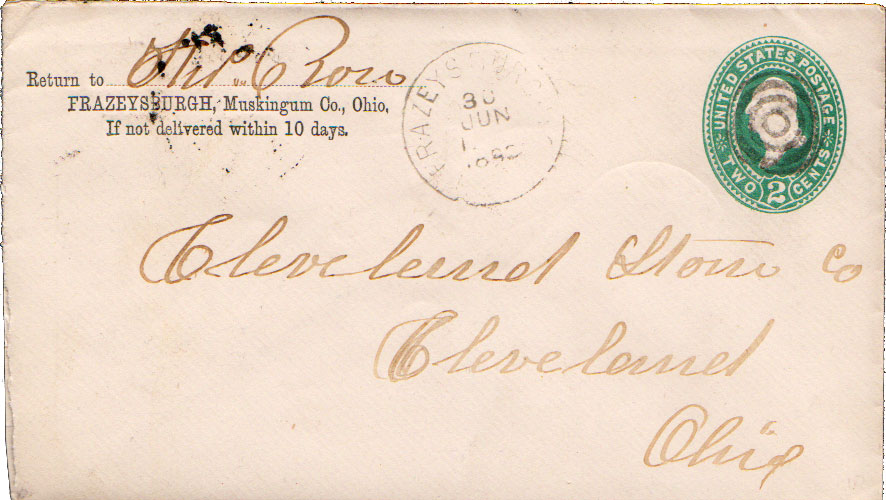 Return to
FRAZEYSBURGH, Muskingum Co., Ohio.
If not delivered within 10 days.
FRAZEYSBURG
30
JUN
UNITED STATES POSTAGE
TWO 2 CENTS
Cleveland Stone Co
Cleveland
Ohio